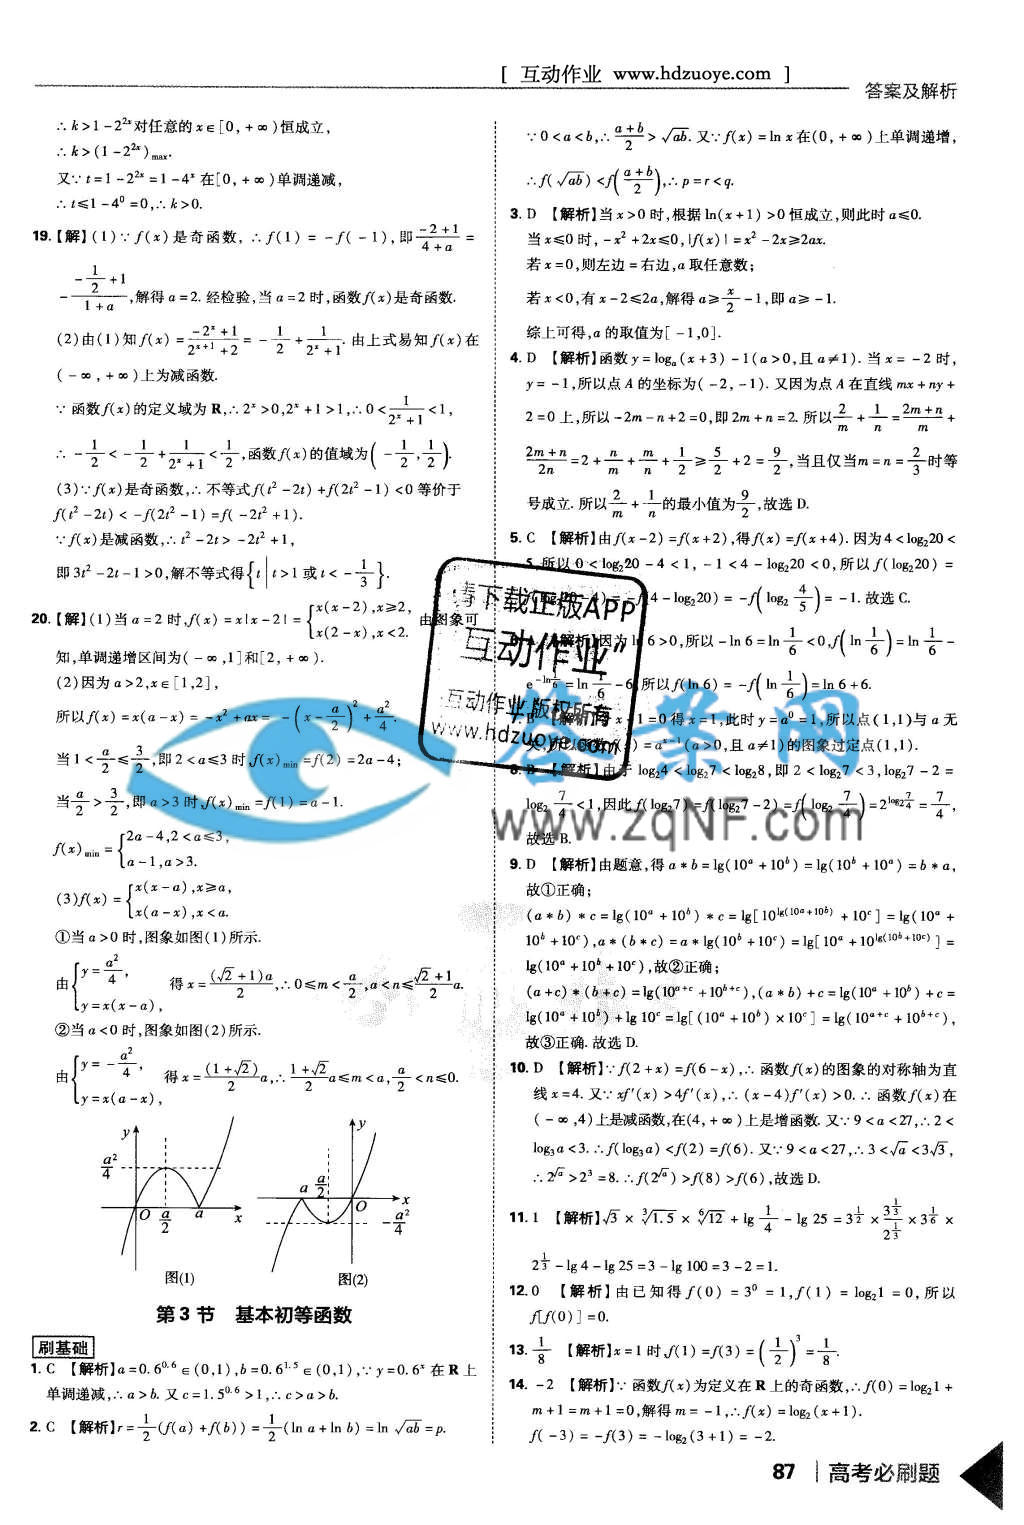 [ 互动作业 www.hdzuoye.com ]
答案及解析
∴k>1-2^{2x}对任意的x∈[0,+∞)恒成立,
∴k>(1-2^{2x})_{max}.
又∵t=1-2^{2x}=1-4^x在[0,+∞)单调递减,
∴t≤1-4^0=0,∴k>0.
19.【解】(1)∵f(x)是奇函数,∴f(1)=-f(-1),即\frac{-2+1}{4+a}=
-\frac{-\frac{1}{2}+1}{1+a},解得a=2.经检验,当a=2时,函数f(x)是奇函数.
(2)由(1)知f(x)=\frac{-2^x+1}{2^{x+1}+2}=-\frac{1}{2}+\frac{1}{2^x+1}.由上式易知f(x)在
(-∞,+∞)上为减函数.
∵函数f(x)的定义域为R,∴2^x>0,2^x+1>1,∴0<\frac{1}{2^x+1}<1,
∴-\frac{1}{2}<-\frac{1}{2}+\frac{1}{2^x+1}<\frac{1}{2},函数f(x)的值域为(-\frac{1}{2},\frac{1}{2}).
(3)∵f(x)是奇函数,∴不等式f(t^2-2t)+f(2t^2-1)<0等价于
f(t^2-2t)<-f(2t^2-1)=f(-2t^2+1).
∵f(x)是减函数,∴t^2-2t>-2t^2+1,
即3t^2-2t-1>0,解不等式得{t|t>1或t<-\frac{1}{3}}.
20.【解】(1)当a=2时,f(x)=x|x-2|={x(x-2),x≥2, x(2-x),x<2. 由图象可
知,单调递增区间为(-∞,1]和[2,+∞).
(2)因为a>2,x∈[1,2],
所以f(x)=x(a-x)=-x^2+ax=-(x-\frac{a}{2})^2+\frac{a^2}{4}.
当1<\frac{a}{2}≤\frac{3}{2},即2<a≤3时,f(x)_{min}=f(2)=2a-4;
当\frac{a}{2}>\frac{3}{2},即a>3时,f(x)_{min}=f(1)=a-1.
f(x)_{min}={2a-4,2<a≤3, a-1,a>3.
(3)f(x)={x(x-a),x≥a, x(a-x),x<a.
①当a>0时,图象如图(1)所示.
由{y=\frac{a^2}{4}, y=x(x-a), 得x=\frac{(√2+1)a}{2},∴0≤m<\frac{a}{2},a<n≤\frac{√2+1}{2}a.
②当a<0时,图象如图(2)所示.
由{y=-\frac{a^2}{4}, y=x(a-x), 得x=\frac{(1+√2)}{2}a,∴\frac{1+√2}{2}a≤m<a,\frac{a}{2}<n≤0.
y \frac{a^2}{4} O \frac{a}{2} a x
y a \frac{a}{2} O x -\frac{a^2}{4}
图(1) 图(2)
第3节 基本初等函数
刷基础
1. C 【解析】a=0.6^{0.6}∈(0,1),b=0.6^{1.5}∈(0,1),∵y=0.6^x在R上
单调递减,∴a>b.又c=1.5^{0.6}>1,∴c>a>b.
2. C 【解析】r=\frac{1}{2}(f(a)+f(b))=\frac{1}{2}(ln a+ln b)=ln √ab=p.
∵0<a<b,∴\frac{a+b}{2}>√ab.又∵f(x)=ln x在(0,+∞)上单调递增,
∴f(√ab)<f(\frac{a+b}{2}),∴p=r<q.
3. D 【解析】当x>0时,根据ln(x+1)>0恒成立,则此时a≤0.
当x≤0时,-x^2+2x≤0,|f(x)|=x^2-2x≥2ax.
若x=0,则左边=右边,a取任意数;
若x<0,有x-2≤2a,解得a≥\frac{x}{2}-1,即a≥-1.
综上可得,a的取值为[-1,0].
4. D 【解析】函数y=log_a(x+3)-1(a>0,且a≠1).当x=-2时,
y=-1,所以点A的坐标为(-2,-1).又因为点A在直线mx+ny+
2=0上,所以-2m-n+2=0,即2m+n=2.所以\frac{2}{m}+\frac{1}{n}=\frac{2m+n}{m}+
\frac{2m+n}{2n}=2+\frac{n}{m}+\frac{m}{n}+\frac{1}{2}≥\frac{5}{2}+2=\frac{9}{2},当且仅当m=n=\frac{2}{3}时等
号成立.所以\frac{2}{m}+\frac{1}{n}的最小值为\frac{9}{2},故选D.
5. C 【解析】由f(x-2)=f(x+2),得f(x)=f(x+4).因为4<log_2 20<
5,所以0<log_2 20-4<1,-1<4-log_2 20<0,所以f(log_2 20)=
4-log_2 20)=-f(log_2 \frac{4}{5})=-1.故选C.
解析】因为ln 6>0,所以-ln 6=ln \frac{1}{6}<0,f(ln \frac{1}{6})=ln \frac{1}{6}-
e^{-ln \frac{1}{6}}=ln \frac{1}{6}-6,所以f(ln 6)=-f(ln \frac{1}{6})=ln 6+6.
7. B 【解析】x-1=0得x=1,此时y=a^0=1,所以点(1,1)与a无
=a^{x-1}(a>0,且a≠1)的图象过定点(1,1).
8. B 【解析】由于log_2 4<log_2 7<log_2 8,即2<log_2 7<3,log_2 7-2=
log_2 \frac{7}{4}<1,因此f(log_2 7)=f(log_2 7-2)=f(log_2 \frac{7}{4})=2^{log_2 \frac{7}{4}}=\frac{7}{4},
故选B.
9. D 【解析】由题意,得a*b=lg(10^a+10^b)=lg(10^b+10^a)=b*a,
故①正确;
(a*b)*c=lg(10^a+10^b)*c=lg[10^{lg(10^a+10^b)}+10^c]=lg(10^a+
10^b+10^c),a*(b*c)=a*lg(10^b+10^c)=lg[10^a+10^{lg(10^b+10^c)}]=
lg(10^a+10^b+10^c),故②正确;
(a+c)*(b+c)=lg(10^{a+c}+10^{b+c}),(a*b)+c=lg(10^a+10^b)+c=
lg(10^a+10^b)+lg 10^c=lg[(10^a+10^b)×10^c]=lg(10^{a+c}+10^{b+c}),
故③正确.故选D.
10. D 【解析】∵f(2+x)=f(6-x),∴函数f(x)的图象的对称轴为直
线x=4.又∵xf'(x)>4f'(x),∴(x-4)f'(x)>0.∴函数f(x)在
(-∞,4)上是减函数,在(4,+∞)上是增函数.又∵9<a<27,∴2<
log_3 a<3.∴f(log_3 a)<f(2)=f(6).又∵9<a<27,∴3<√a<3√3,
∴2^{√a}>2^3=8.∴f(2^{√a})>f(8)>f(6),故选D.
11. 1 【解析】√3×∛1.5×⁶√12+lg \frac{1}{4}-lg 25=3^{\frac{1}{2}}×\frac{3^{\frac{1}{3}}}{2^{\frac{1}{3}}}×3^{\frac{1}{6}}×
2^{\frac{1}{3}}-lg 4-lg 25=3-lg 100=3-2=1.
12. 0 【解析】由已知得f(0)=3^0=1,f(1)=log_2 1=0,所以
f[f(0)]=0.
13. \frac{1}{8} 【解析】x=1时,f(1)=f(3)=(\frac{1}{2})^3=\frac{1}{8}.
14. -2 【解析】∵函数f(x)为定义在R上的奇函数,∴f(0)=log_2 1+
m+1=m+1=0,解得m=-1,∴f(x)=log_2(x+1).
f(-3)=-f(3)=-log_2(3+1)=-2.
请下载正版APP
"互动作业"
互动作业 版权所有
www.hdzuoye.com
答案网
www.zqNF.com
87 | 高考必刷题